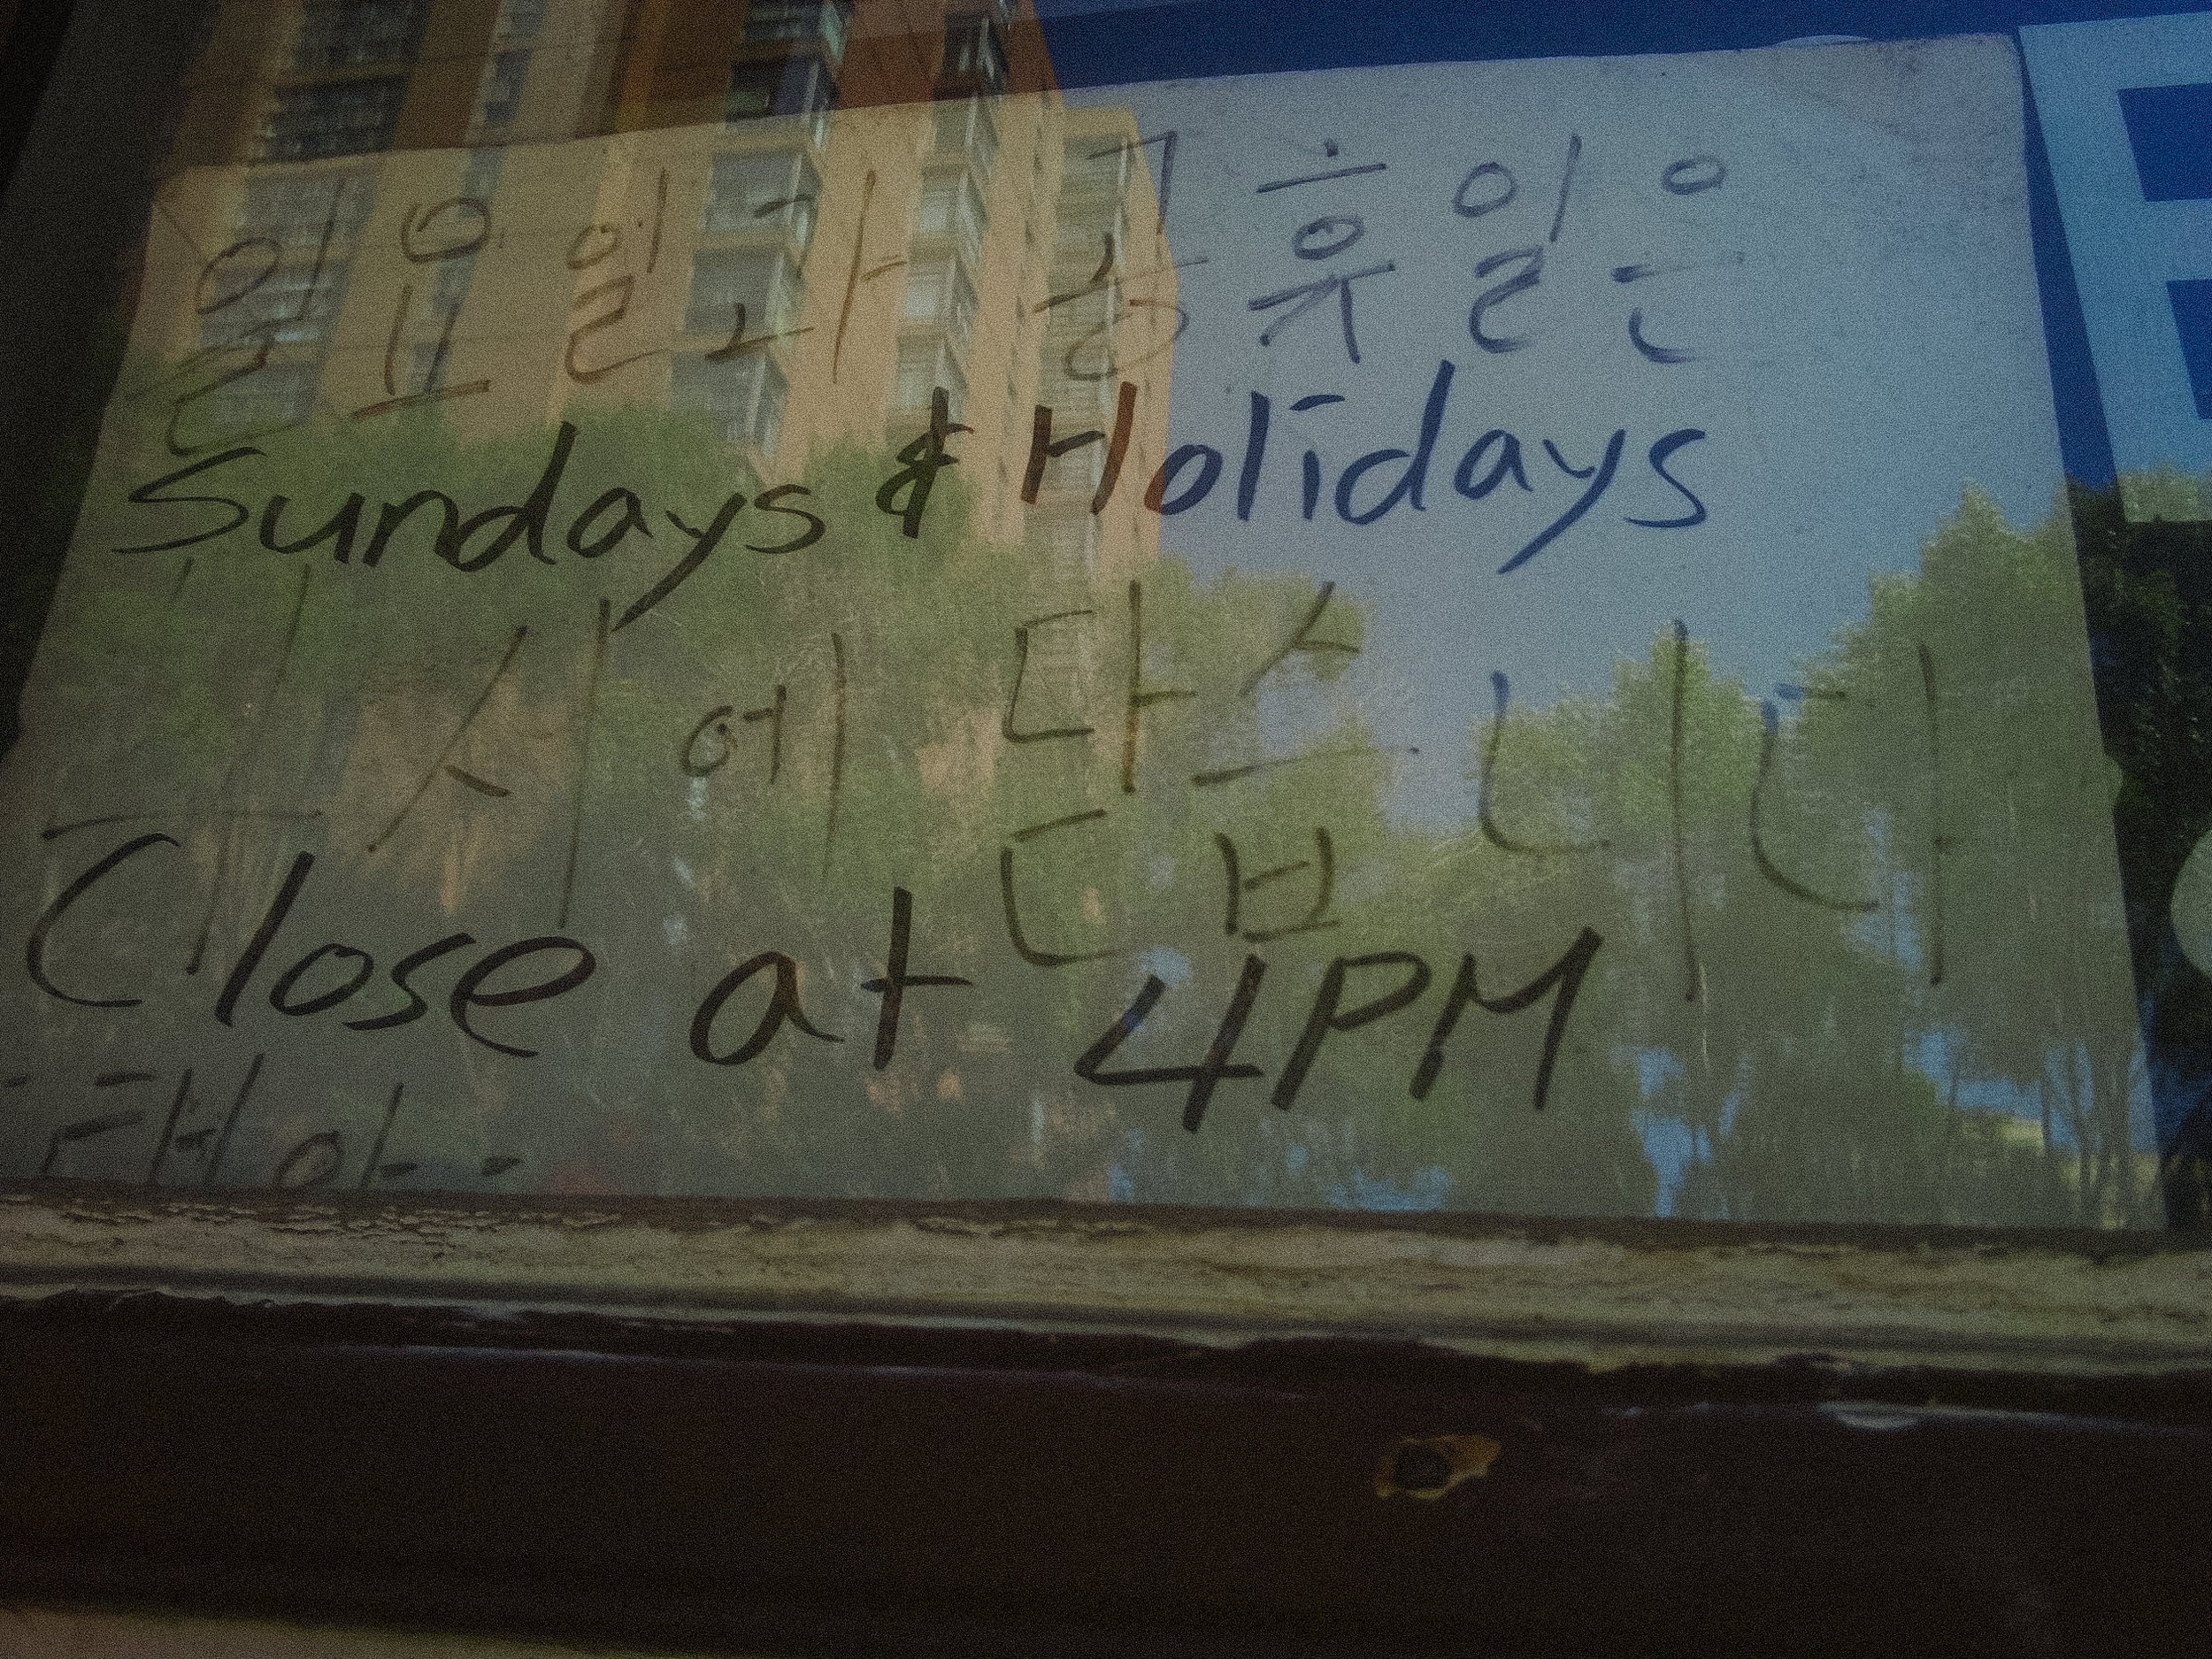 일요일과 공휴일은
Sundays & Holidays
4시에 닫습니다
Close at 4PM